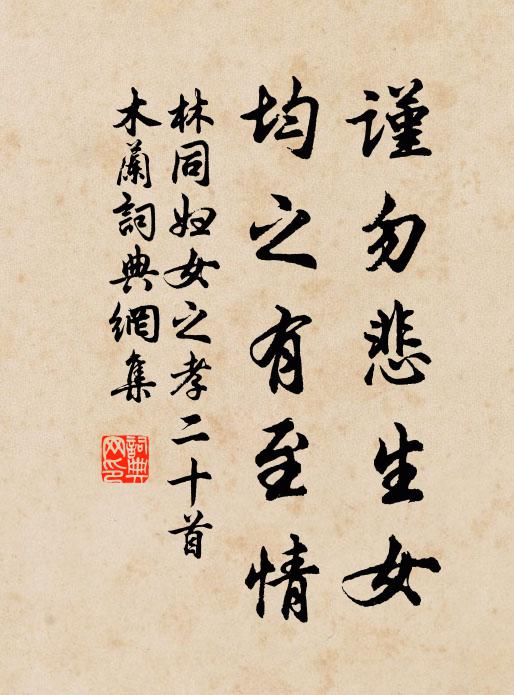 谨勿悲生女
均之有至情
林同妇女之孝二十首
木兰词典网集
詞典
网印